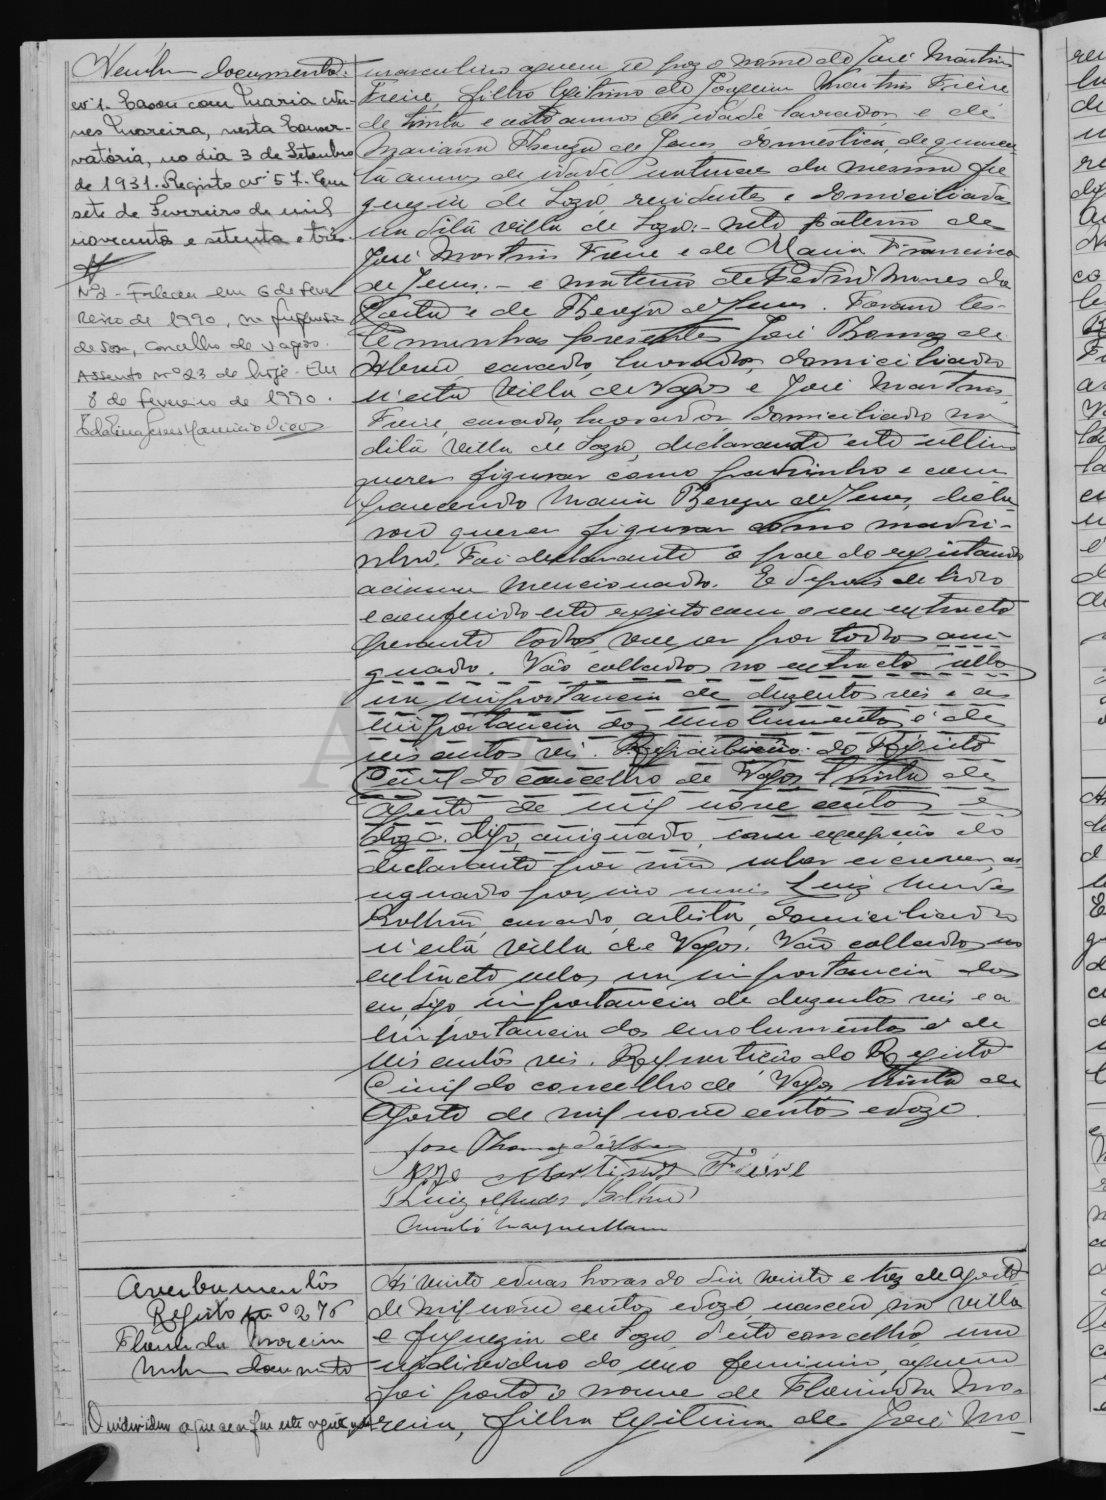 Nenhum documento.
Nº 1. Casou com Maria Nu-
nes Moreira, nesta Conser-
vatória, no dia 3 de Setembro
de 1931. Registo nº 57. Em
sete de Fevereiro de mil
novecentos e setenta e três.
Nº 2 - Faleceu em 6 de Feve
reiro de 1990, na freguesia
de Soza, concelho de Vagos.
Assento nº 23 de hoje. Em
8 de fevereiro de 1990.
masculino a quem se poz o nome de José Martins
Freire, filho legitimo de Joaquim Martins Freire
de trinta e oito annos de idade lavrador e de
Marianna Thereza de Jesus, domestica, de quaren
ta annos de idade naturaes da mesma fre
guezia de Soza, residentes e domiciliados
na dita villa de Soza. - neto paterno de
José Martins Freire e de Maria Francisca
de Jesus. - e materno de Pedro Nunes da
Costa e de Thereza de Jesus. Foram tes-
temunhas presentes José Thomaz de
Abreu, casado, lavrador, domiciliado
n'esta villa de Vagos e José Martins
Freire, casado, lavrador, domiciliado na
dita villa de Soza, declarando este ultimo
querer figurar como padrinho e com
parecendo Maria Thereza de Jesus, decla
rou querer figurar como madri-
nha. Foi declarante o pae do registando
acima mencionado. E depois de lido
e conferido este registo com o seu extracto
perante todos, vae ser por todos assi-
gnado. Vão collados no extracto sellos
na importancia de duzentos reis e a
importancia dos emolumentos é de
seis centos reis. Repartição do Registo
Civil do concelho de Vagos, trinta de
Agosto de mil nove centos e
doze. digo, assignado, com excepção do
declarante por não saber escrever, as
signado por mim
Luiz Mendes
Bolhão, casado, artista, domiciliado
n'esta villa de Vagos. Vão collados no
extracto sellos na importancia dos
em, digo, importancia de duzentos reis e a
importancia dos emolumentos é de
seis centos reis. Repartição do Registo
Civil do concelho de Vagos, trinta de
Agosto de mil nove centos e doze.
José Thomaz d'Abreu
José Martins Freire
Averbamentos
Registo nº 276
Florinda Moreira
Nenhum documento
O individuo a que se refere este registo
Ás vinte e duas horas do dia vinte e trez de Agosto
de mil nove centos e doze, nasceu na villa
e freguezia de Soza d'este concelho um
individuo do sexo feminino, a quem
foi posto o nome de Florinda Mo-
reira, filha legitima de José Mo-